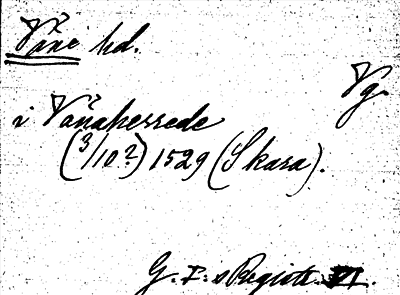 Våne hd.
Vg.
i Vånaherrede
(3/10?) 1529 (Skara).
G. I:s Registr. VI.